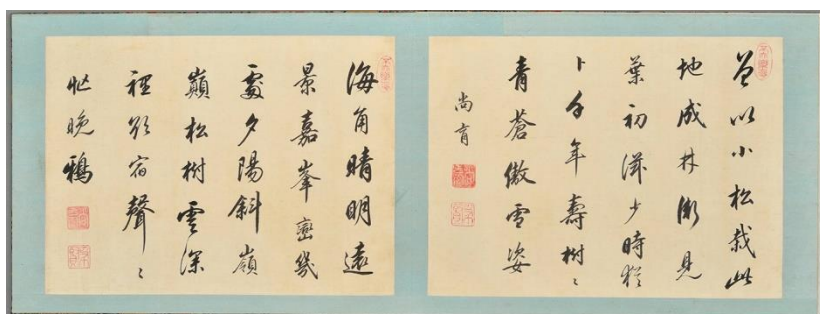 曾以小松栽此
地成林漸見
葉初滋少時
卜千年壽樹〻
青蒼傲雪姿
尚育
海角晴明遠
景嘉峯巒幾
處夕陽斜嶺
巔松樹雲深
裡欲宿聲〻
忙晚鴉